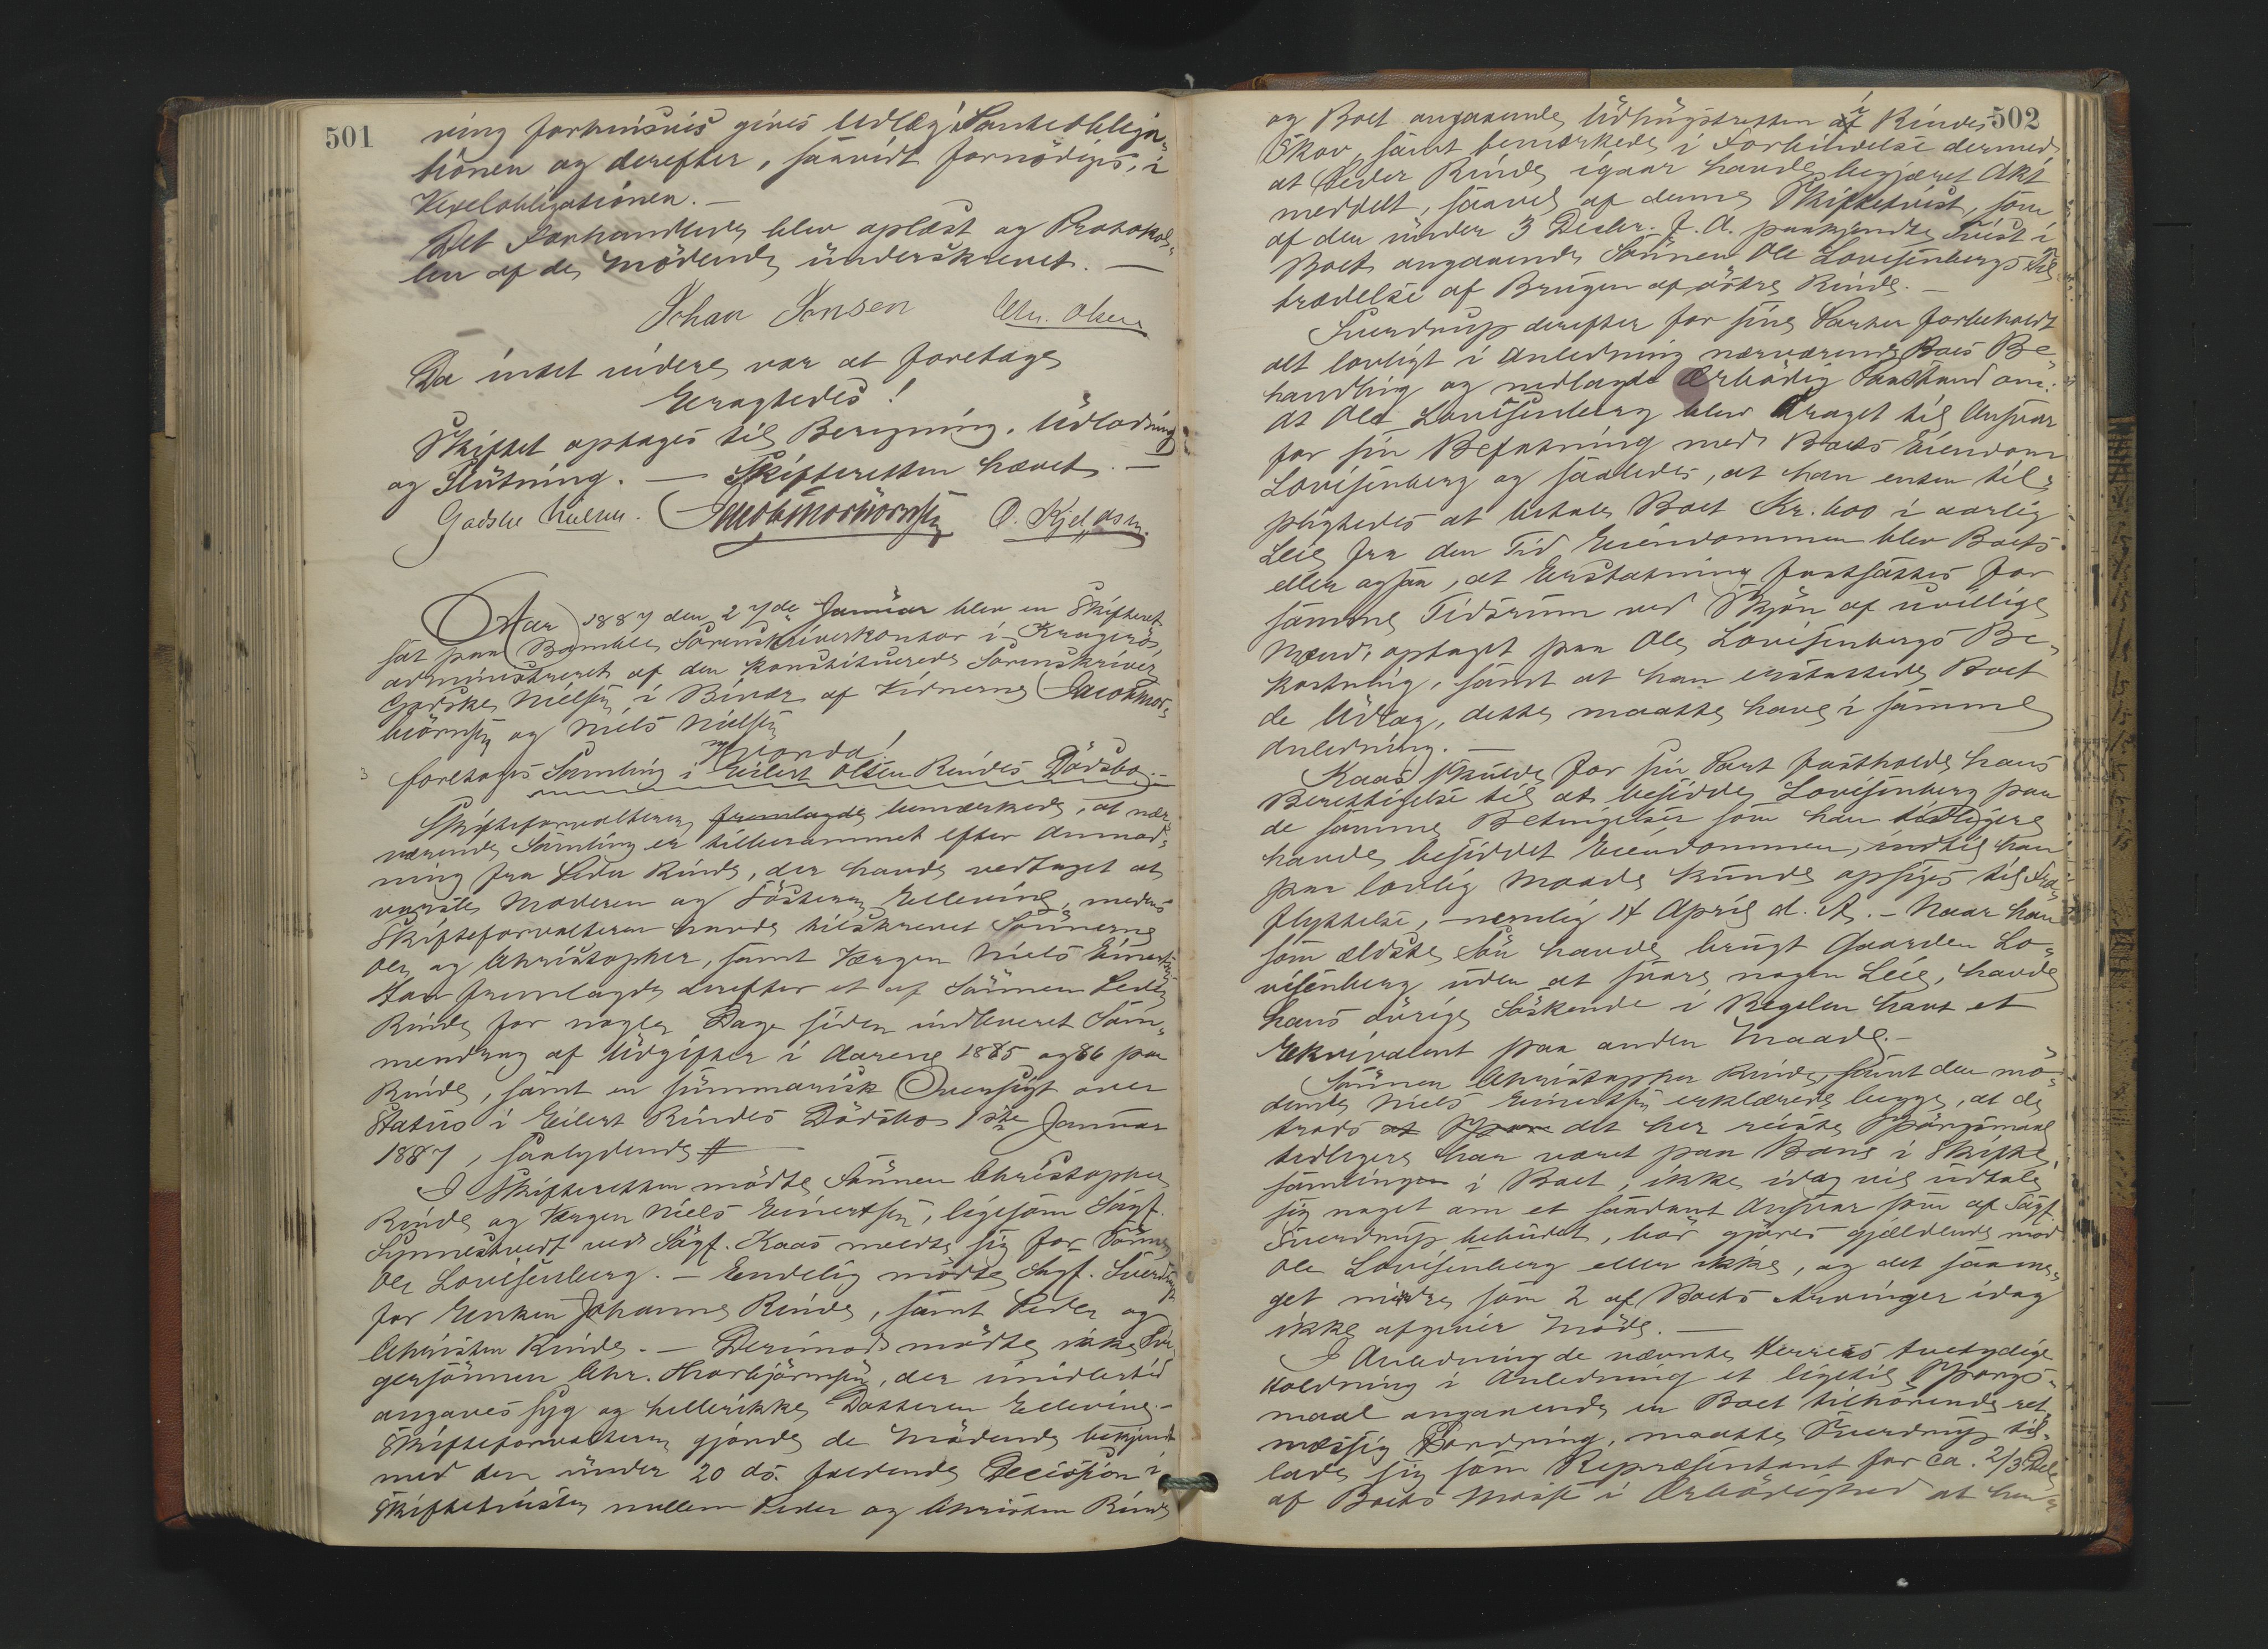 501
ring forhnisvis gives Udlæg i Panteobliga„
tionen og derefter, saavidt fornödiges, i
Vexelobligationen. —
Det Forhandlede blev oplæst og Protokol„
len af de Mödende underskrevet. —
Johan Jensen Chr. Olsen
Da intet videre var at foretage
Eragtedes!
Skiftet optages til Beregning, Udlodning
og Slutning. — Skifteretten hævet. —
Godske Nielsen. Jacob Thorbiörnsen O. Kjeldsen.
Aar 1887 den 27de Januar blev en Skifteret
sat paa Bamble Sorenskriverkontor i Kragerö,
administreret af den konstituerede Sorenskriver
Godske Nielsen i Bivær af Vidnerne Jacob Thor„
biörnsen og Niels Nielsen
Hvorda!
foretages Samling i Eilert Olsen Rindes Dödsbo. —
Skifteforvalteren fremlagde bemærkede, at nær„
værende Samling er tilberammet efter Anmod„
ning fra Peder Rinde, der havde vedtaget at
varsle Moderen og Sösteren Ellevine, medens
Skifteforvalteren havde tilskrevet Sönnerne
Ole og Christopher, samt Værgen Niels Einertsen
Han fremlagde derefter et af Sönnen Peder
Rinde for nogle Dage siden indleveret Sam„
mendrag af Udgifter i Aarene 1885 og 86 paa
Rinde, samt en summarisk Oversigt over
Status i Eilert Rindes Dödsbo 1ste Januar
1887, saalydende #
I Skifteretten mödte Sönnen Christopher
Rinde og Værgen Niels Einertsen, ligesom Sagf.
Synnestvedt ved Sagf. Kaas meldte sig for Sönnen
Ole Lovisenberg. — Endelig mödte Sagf. Sverdrup
for Enken Johanne Rinde, samt Peder og
Christen Rinde. — Derimod mödte ikke Svi„
gersönnen Chr. Thorbjörnsen, der imidlertid
angaves syg og hellerikke Datteren Ellevine. —
Skifteforvalteren gjorde de Mödende bekjendt
med den under 20 ds. faldende Decision i
Skiftetvisten mellem Peder og Christen Rinde
502
og Boet angaaende Udhugstretten af i Rindes
Skov, samt bemærkede i Forbindelse dermed
at Peder Rinde igaar havde begjæret Akt
meddelt, saavel af denne Skiftetvist, som
af den under 3 Decbr. f. A. paakjendte Tvist i
Boet angaaende Sönnen Ole Lovisenbergs Til„
trædelse af Brugen af östre Rinde. —
Sverdrup derefter for sine Parter forbeholdt
alt lovligt i Anledning nærværende Boes Be„
handling og nedlagde Ærbödig Paastand om:
At Ole Lovisenberg blev draget til Ansvar
for sin Befatning med Boets Eiendom
Lovisenberg og saaledes, at han enten til„
pligtedes at betale Boet Kr. 600 i aarlig
Leie fra den Tid Eiendommen blev Boets
eller ogsaa, at Erstatning fastsattes for
samme Tidsrum ved Skjön af uvillige
Mænd, optaget paa Ole Lovisenbergs Be„
kostning, samt at han erstattede Boet
de Udlæg, dette maatte have i samme
Anledning. —
Kaas skulde for sin Part fastholde hans
Berettigelse til at besidde Lovisenberg paa
de samme Betingelser som han tidligere
havde besiddet Eiendommen, indtil han
paa lovlig Maade kunde opsiges til Fra„
flyttelse, — nemlig 14 April d. A. — Naar han
som ældste Sön havde brugt Gaarden Lo„
visenberg uden at svare nogen Leie, havde
hans övrige Söskende i Regelen havt et
Ekvivalent paa anden Maade. —
Sönnen Christopher Rinde, samt den mö„
dende Niels Einertsen erklærede begge, at de
trods at det her reiste Spörgsmaal
tidligere har været paa Bane i Skifte„
samlingen i Boet, ikke idag vil udtale
sig noget om et saadant Ansvar som af Sagf.
Sverdrup bebudet, bör gjöres gjældende mod
Ole Lovisenberg eller ikke, og det saame„
get mindre som 2 af Boets Arvinger idag
ikke afgiver Möde. —
I Anledning de nævnte Herrers tvetydige
Holdning i Anledning et ligetil Spörgs„
maal angaaende en Boet tilhörende ret„
mæssig Fordring, maatte Sverdrup til„
lade sig som Repræsentant for ca. 2/3 Dele
af Boets Masse i Ærbödighed at hen„